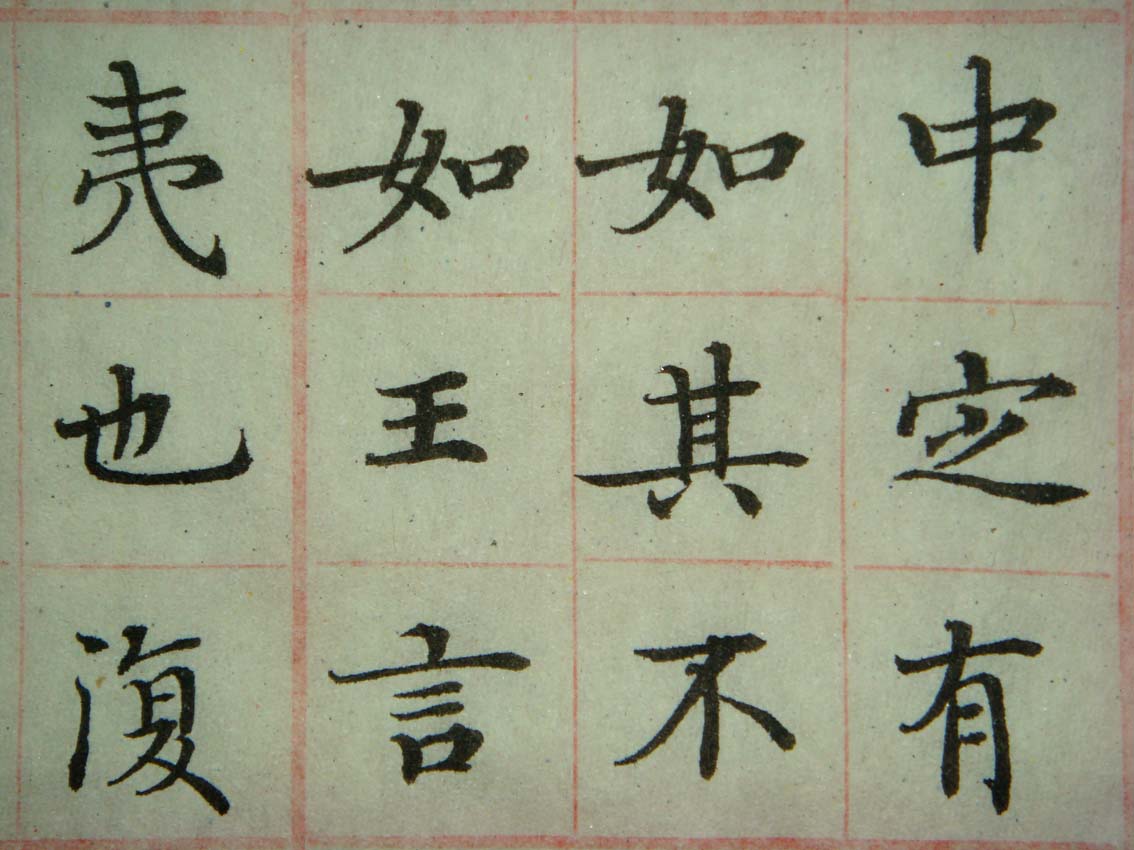 中定有
如其不
如王言
夷也復